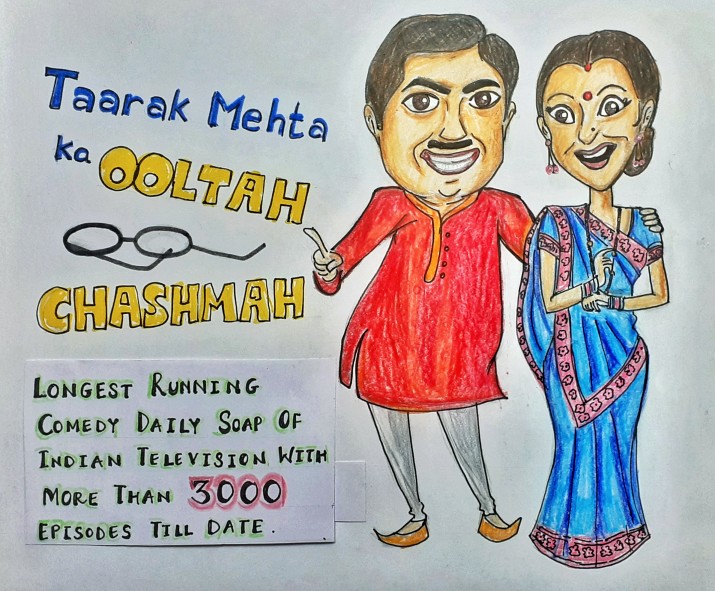 Taarak Mehta
ka OOLTAH
CHASHMAH
LONGEST RUNNING
COMEDY DAILY SOAP OF
INDIAN TELEVISION WITH
MORE THAN 3000
EPISODES TILL DATE.